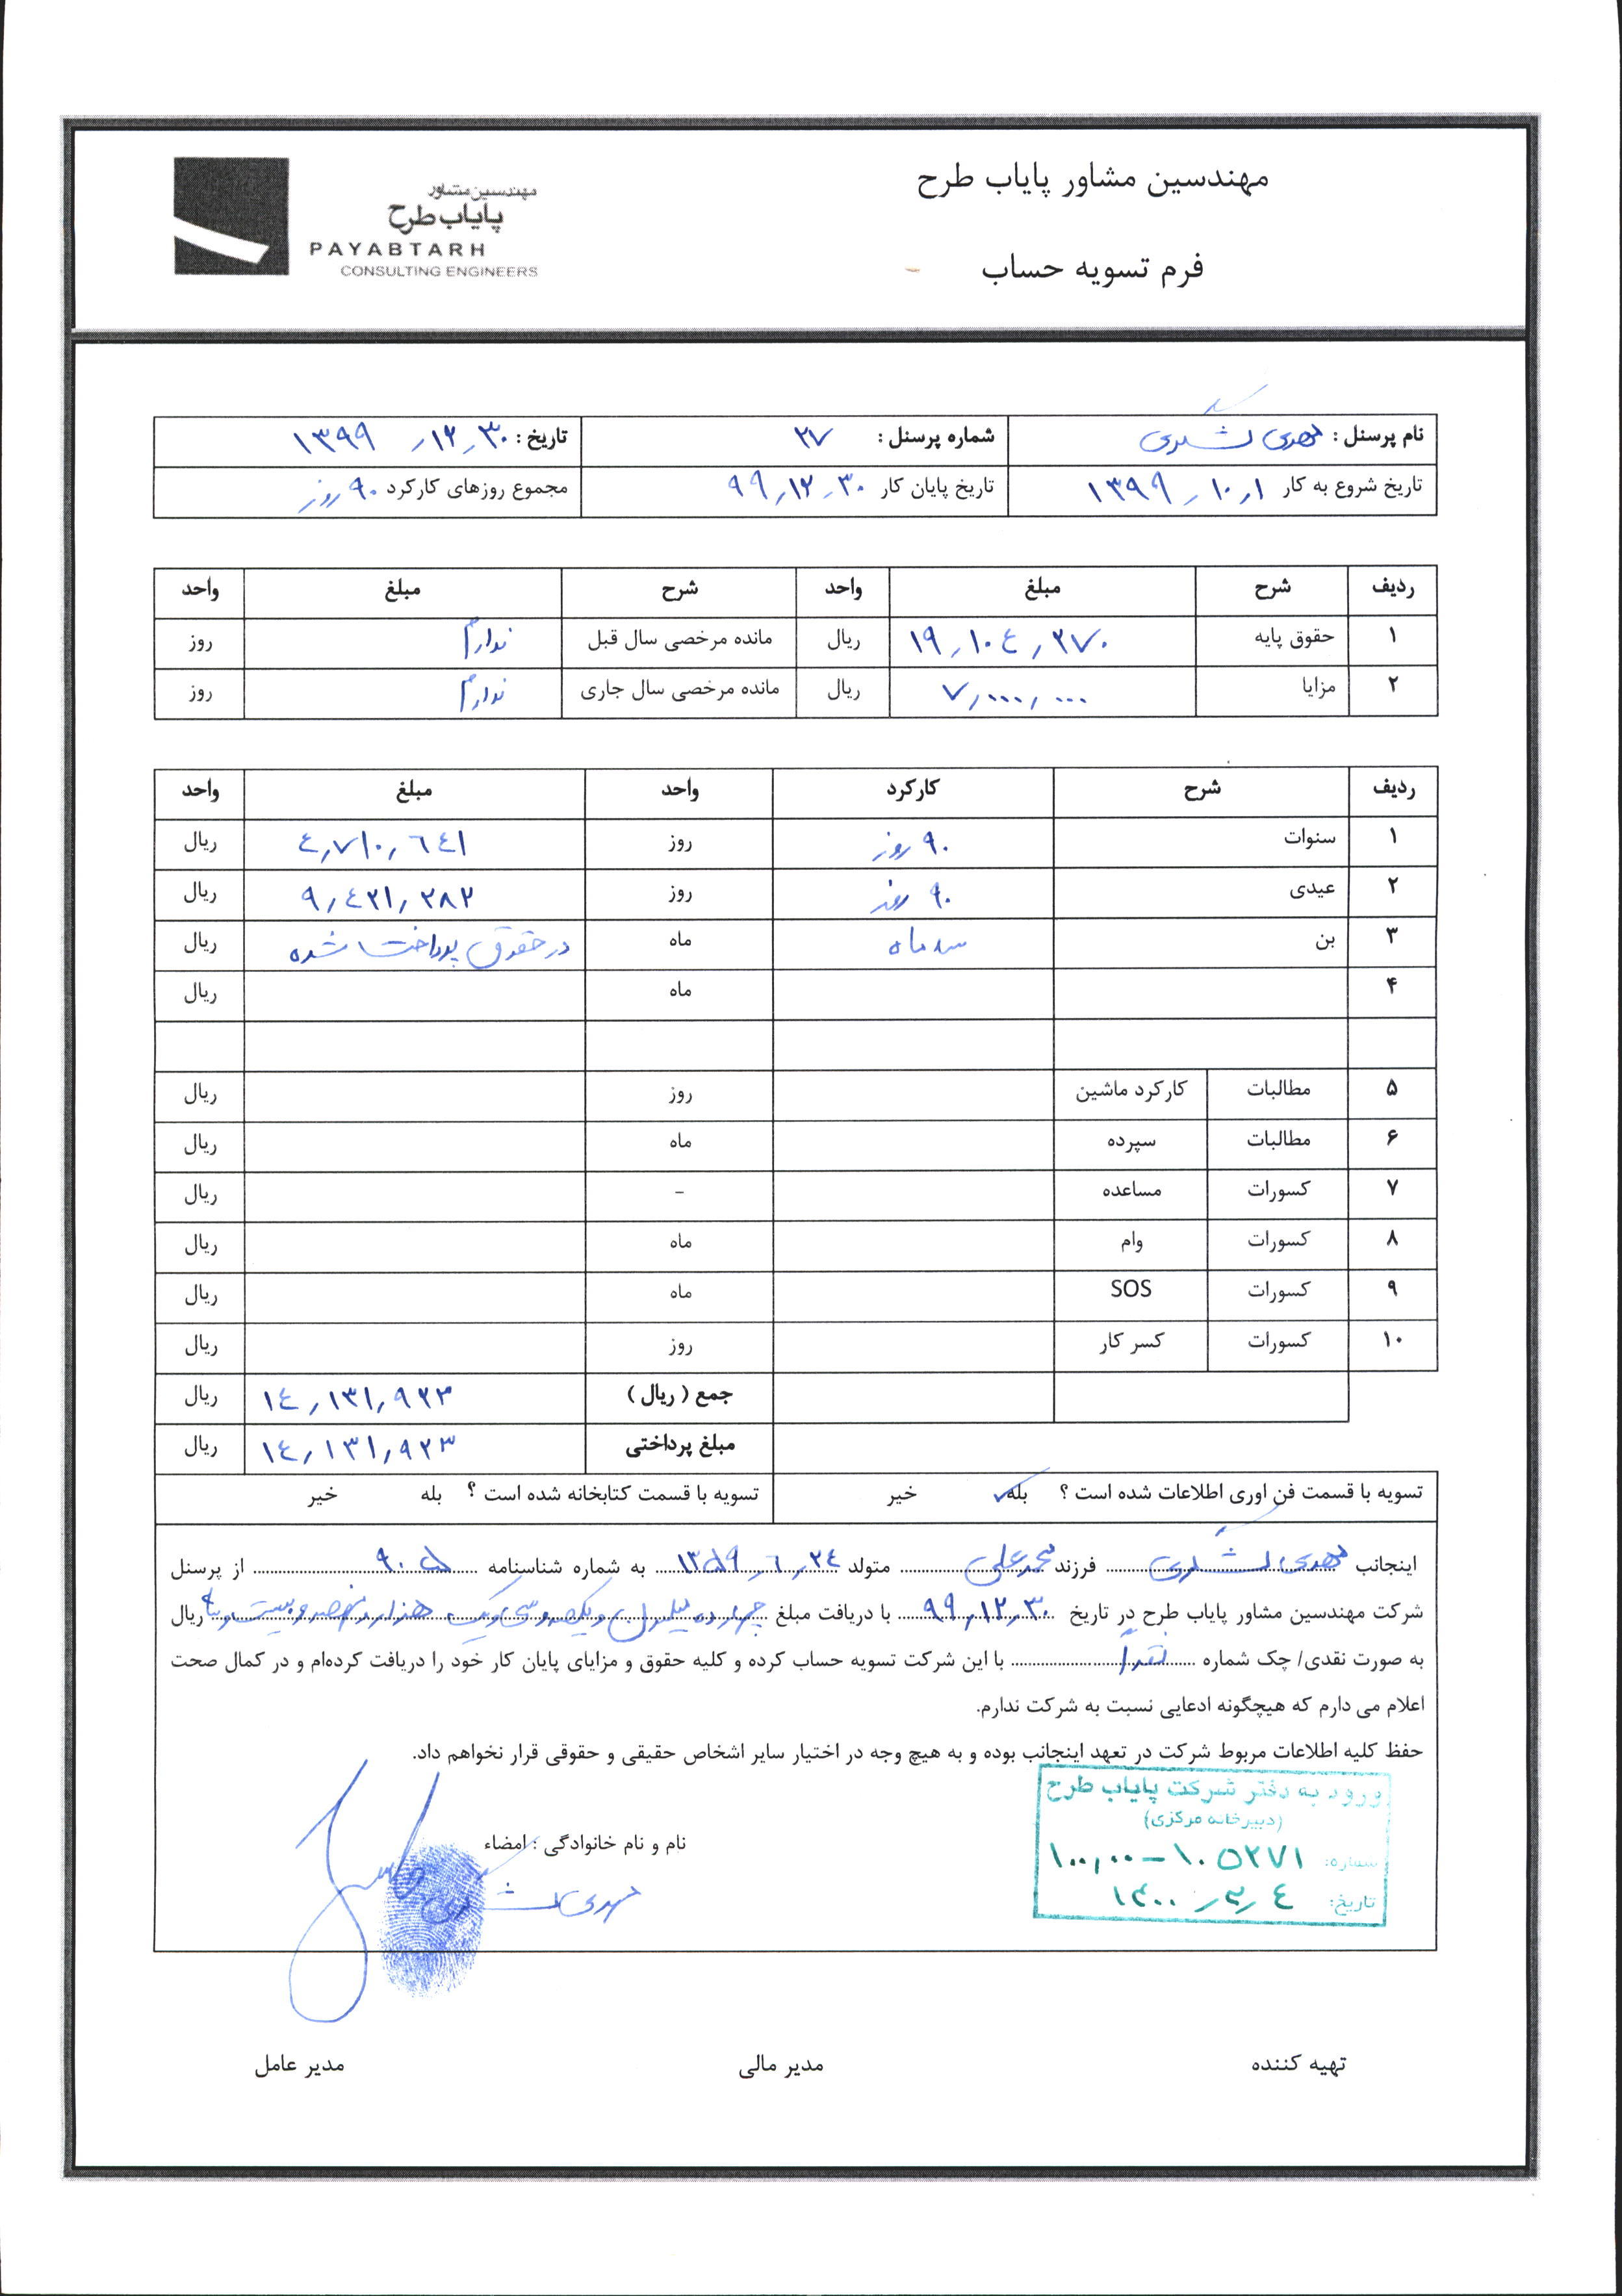 مهندسین مشاور پایاب طرح
مهندسین مشاور
پایاب طرح
PAYABTARH
CONSULTING ENGINEERS
فرم تسویه حساب
نام پرسنل : مهدی لشگری شماره پرسنل : ۲۷ تاریخ : ۱۳۹۹/۱۲/۳۰
تاریخ شروع به کار ۱۳۹۹/۱۰/۱ تاریخ پایان کار ۹۹/۱۲/۳۰ مجموع روزهای کارکرد ۹۰ روز
ردیف شرح مبلغ واحد شرح مبلغ واحد
۱ حقوق پایه ۱۹/۱۰۴/۲۷۰ ریال مانده مرخصی سال قبل ندارم روز
۲ مزایا ۷/۰۰۰/۰۰۰ ریال مانده مرخصی سال جاری ندارم روز
ردیف شرح کارکرد واحد مبلغ واحد
۱ سنوات ۹۰ روز روز ۴/۷۱۰/۶۴۱ ریال
۲ عیدی ۹۰ روز روز ۹/۴۲۱/۲۸۲ ریال
۳ بن سه ماه ماه در حقوق پرداخت شده ریال
۴ ماه ریال
۵ مطالبات کارکرد ماشین روز ریال
۶ مطالبات سپرده ماه ریال
۷ کسورات مساعده – ریال
۸ کسورات وام ماه ریال
۹ کسورات SOS ماه ریال
۱۰ کسورات کسر کار روز ریال
جمع ( ریال ) ۱۴/۱۳۱/۹۲۳ ریال
مبلغ پرداختی ۱۴/۱۳۱/۹۲۳ ریال
تسویه با قسمت فن اوری اطلاعات شده است ؟ بله خیر تسویه با قسمت کتابخانه شده است ؟ بله خیر
اینجانب مهدی لشگری فرزند محمدعلی متولد ۱۳۵۹/۶/۲۴ به شماره شناسنامه ۹۰۵ از پرسنل
شرکت مهندسین مشاور پایاب طرح در تاریخ ۹۹/۱۲/۳۰ با دریافت مبلغ چهارده میلیون و یکصد و سی و یک هزار و نهصد و بیست و سه ریال
به صورت نقدی/ چک شماره نقداً با این شرکت تسویه حساب کرده و کلیه حقوق و مزایای پایان کار خود را دریافت کرده‌ام و در کمال صحت
اعلام می دارم که هیچگونه ادعایی نسبت به شرکت ندارم.
حفظ کلیه اطلاعات مربوط شرکت در تعهد اینجانب بوده و به هیچ وجه در اختیار سایر اشخاص حقیقی و حقوقی قرار نخواهم داد.
ورود به دفتر شرکت پایاب طرح
(دبیرخانه مرکزی)
شماره: ۱۰۰/۰۰-۱۰۵۲۷۱
تاریخ: ۱۴۰۰/۳/۴
نام و نام خانوادگی : امضاء
مهدی لشگری
تهیه کننده مدیر مالی مدیر عامل